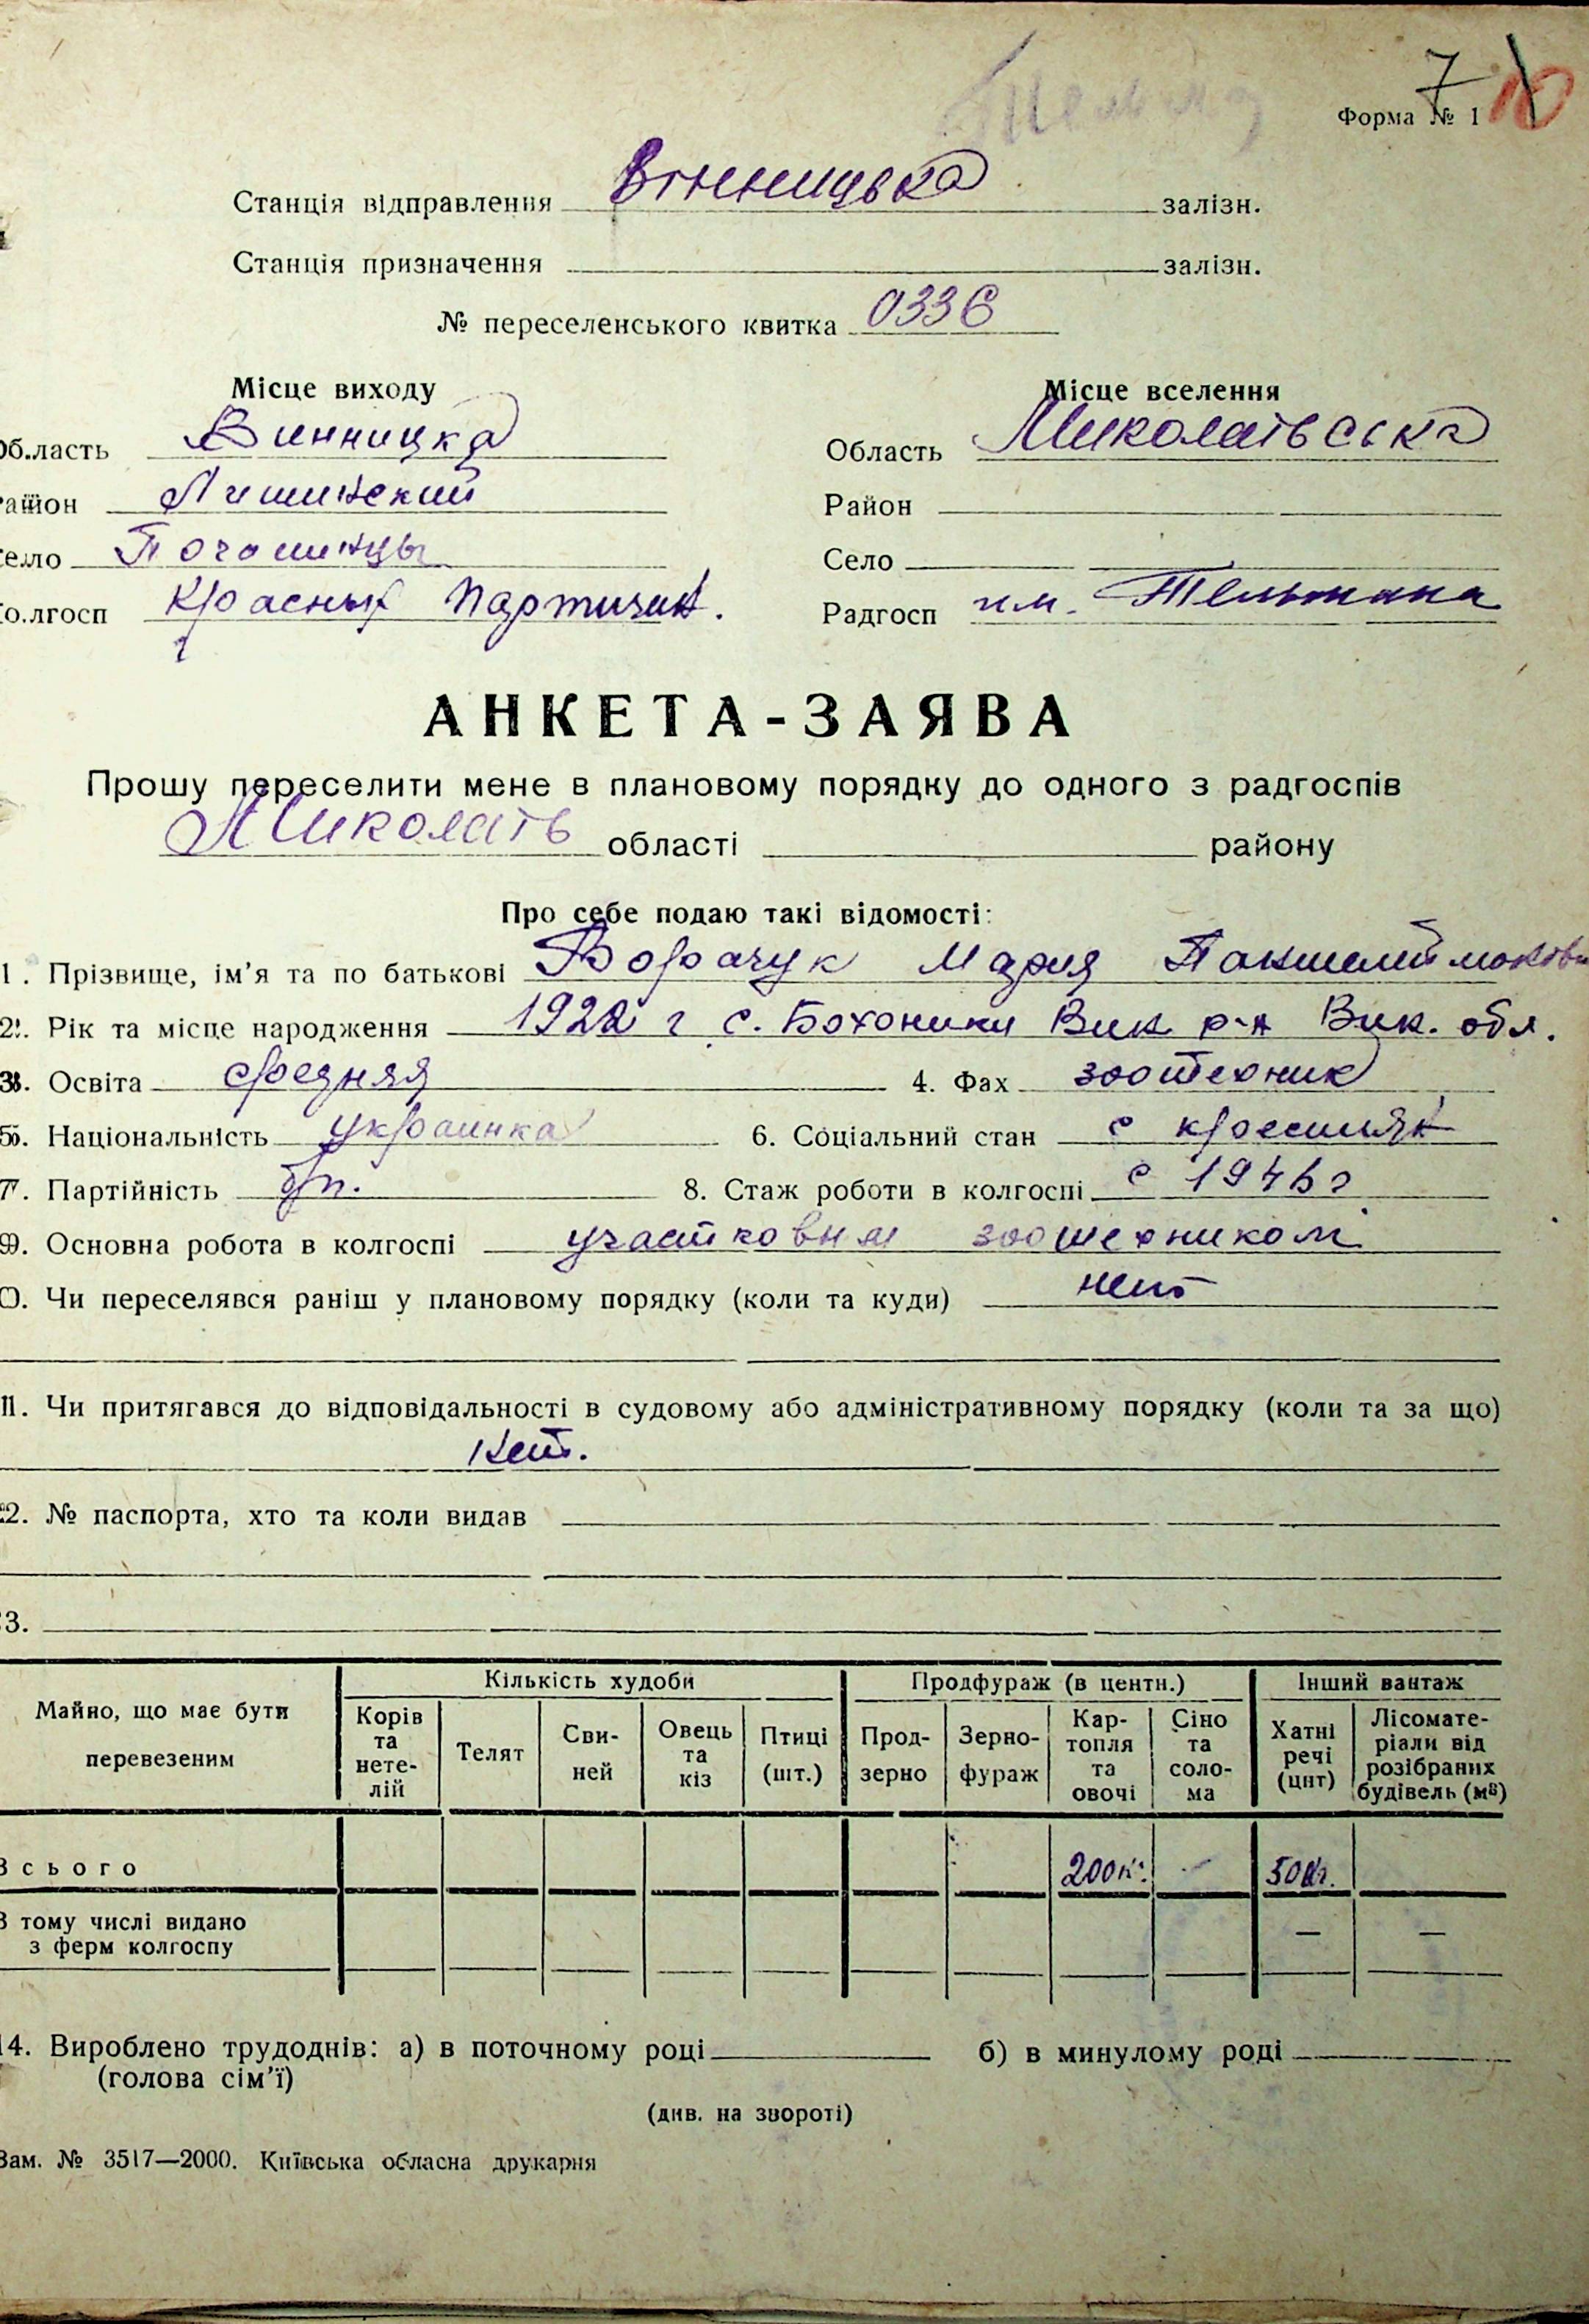 7 10
Форма № 1
Станція відправлення Вінницька залізн.
Станція призначення залізн.
№ переселенського квитка 0336
Місце виходу Місце вселення
Область Винницка Область Миколаївська
Район Район
Село Село
Колгосп Красный Партизан. Радгосп им. Тельмана
АНКЕТА-ЗАЯВА
Прошу переселити мене в плановому порядку до одного з радгоспів
Миколаїв області району
Про себе подаю такі відомості:
1. Прізвище, ім'я та по батькові Мария
2. Рік та місце народження 1922 г с. Бохоники Вин. р-н Вин. обл.
3. Освіта средняя 4. Фах зоотехник
5. Національність украинка 6. Соціальний стан с крестьян
7. Партійність б/п. 8. Стаж роботи в колгоспі с 1946 г
9. Основна робота в колгоспі участковым зоотехником
10. Чи переселявся раніш у плановому порядку (коли та куди) нет
11. Чи притягався до відповідальності в судовому або адміністративному порядку (коли та за що)
Нет.
12. № паспорта, хто та коли видав
13.
Майно, що має бути перевезеним Кількість худоби Продфураж (в центн.) Інший вантаж
Корів та нетелій Телят Свиней Овець та кіз Птиці (шт.) Продзерно Зернофураж Картопля та овочі Сіно та солома Хатні речі (цнт) Лісоматеріали від розібраних будівель (м³)
Всього 200 к. - 50 кг.
В тому числі видано — —
з ферм колгоспу
14. Вироблено трудоднів: а) в поточному році б) в минулому році
(голова сім'ї)
(див. на звороті)
Зам. № 3517—2000. Київська обласна друкарня